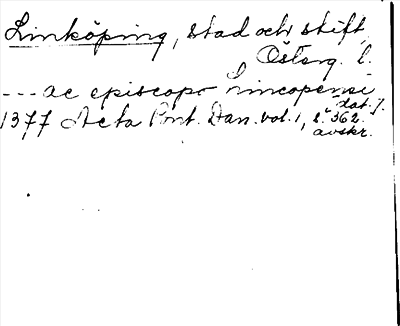 Linköping, stad och stift,
Österg. l.
--- ac episcopo Lincopensi
dat. 7.
1377 Acta Pont. Dan. vol. 1, s. 362.
avskr.